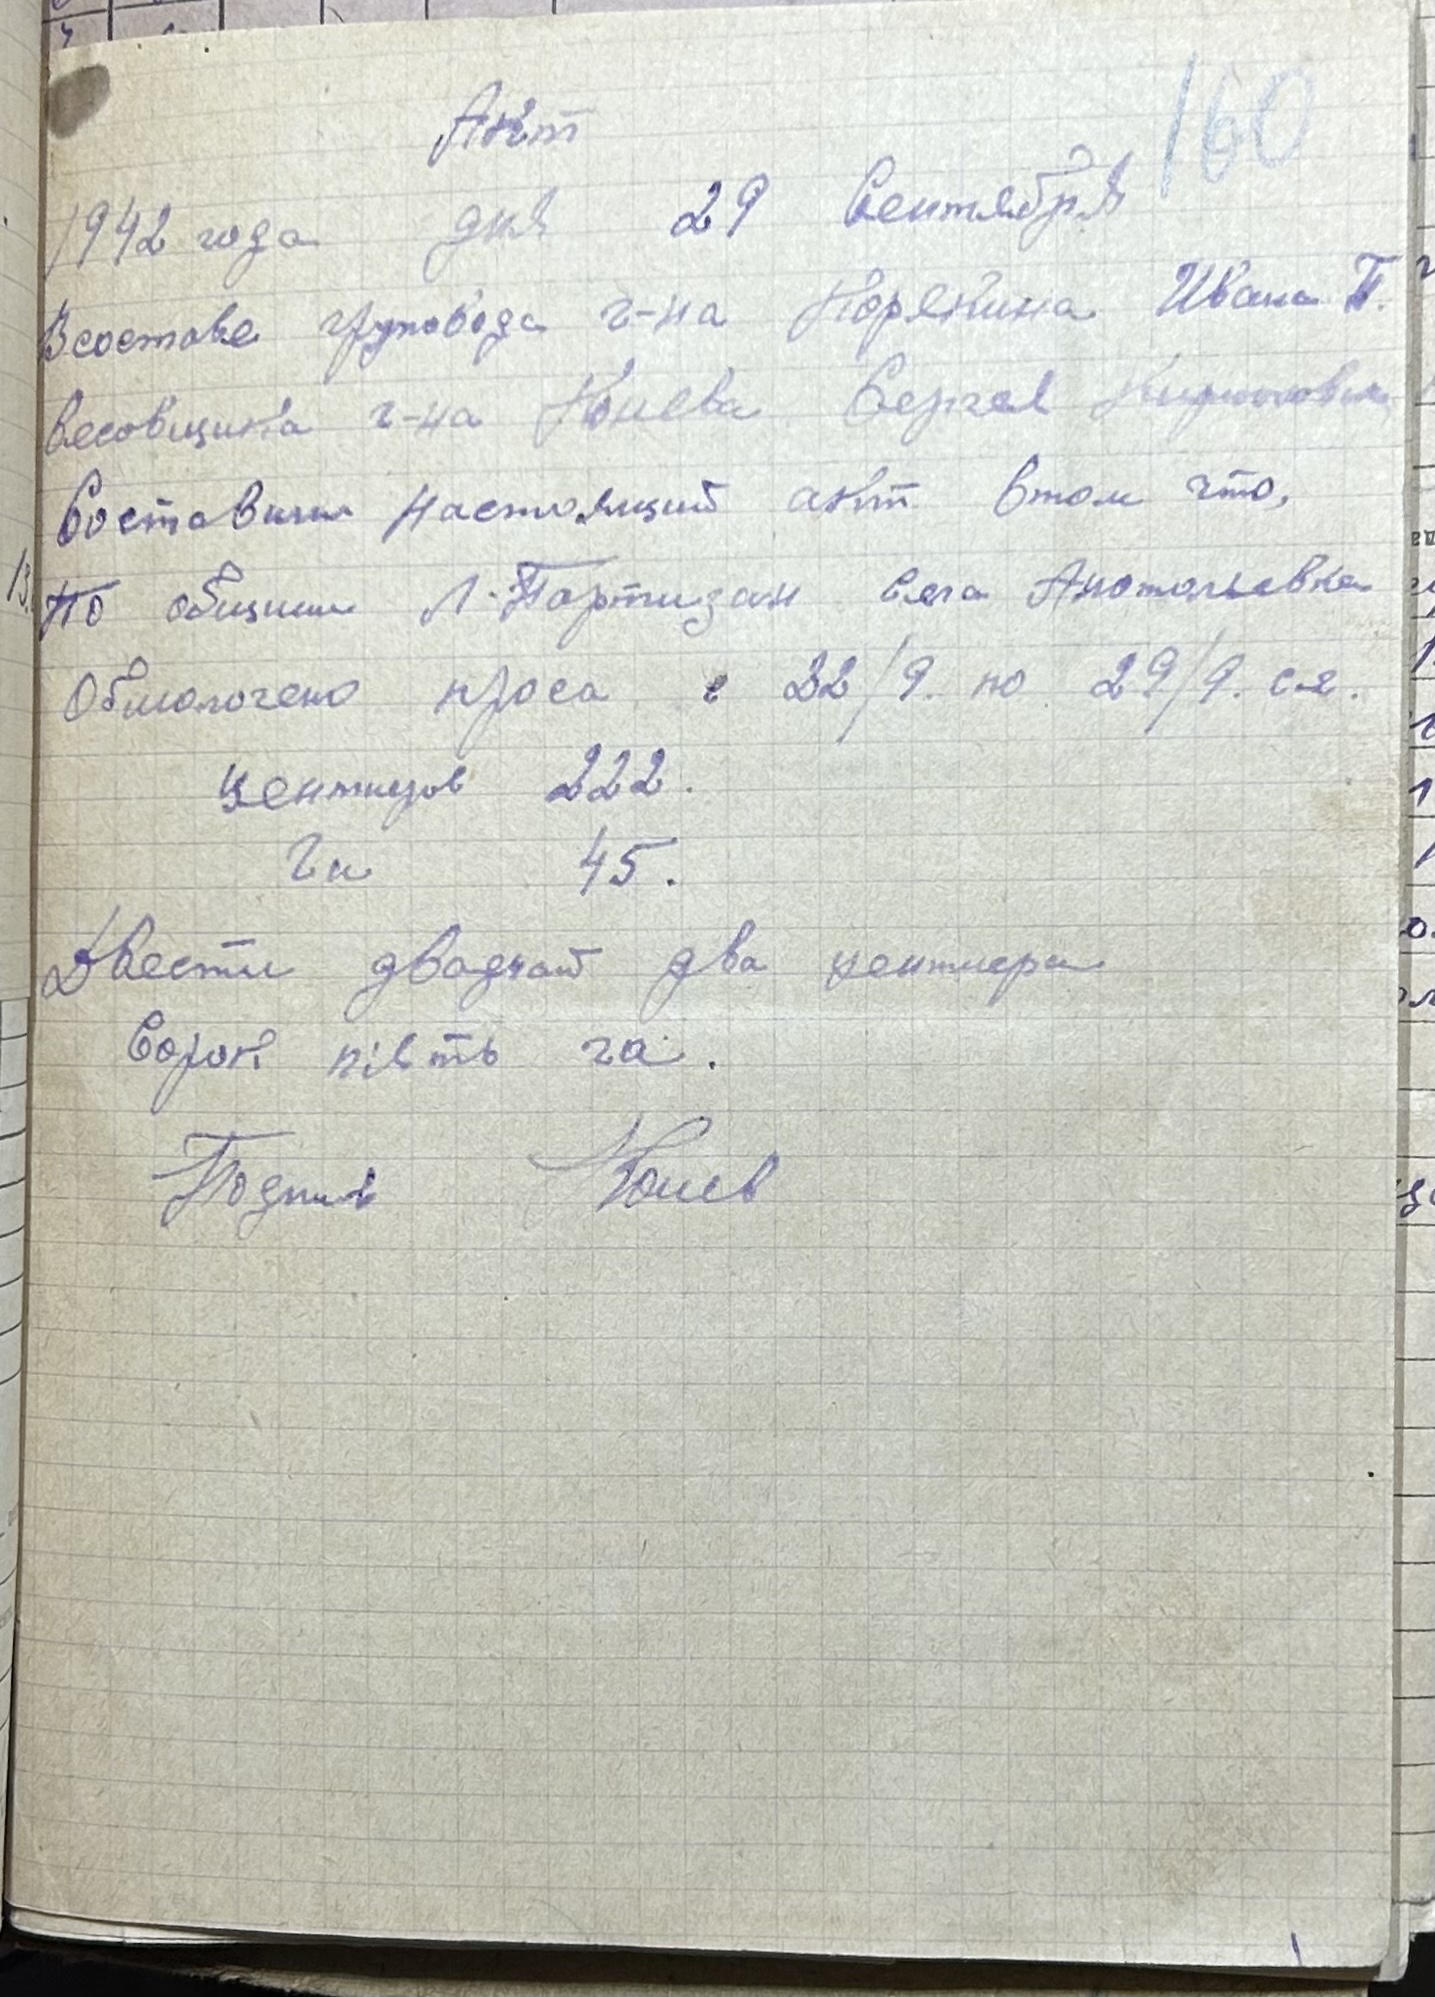 160
Акт
1942 года дня 29 Сентября
Всостове груповода г-на Корякина Ивана П.
Весовщика г-на Конева Сергея
Составили настоящий акт втом что,
по общини Л-Портизан села Анотольевка
Обмолочено проса с 22/9. по 29/9. с.г.
центнеров 222.
Га 45.
Двести двадцат два центнера
Сорок пять га.
Подпись Конев